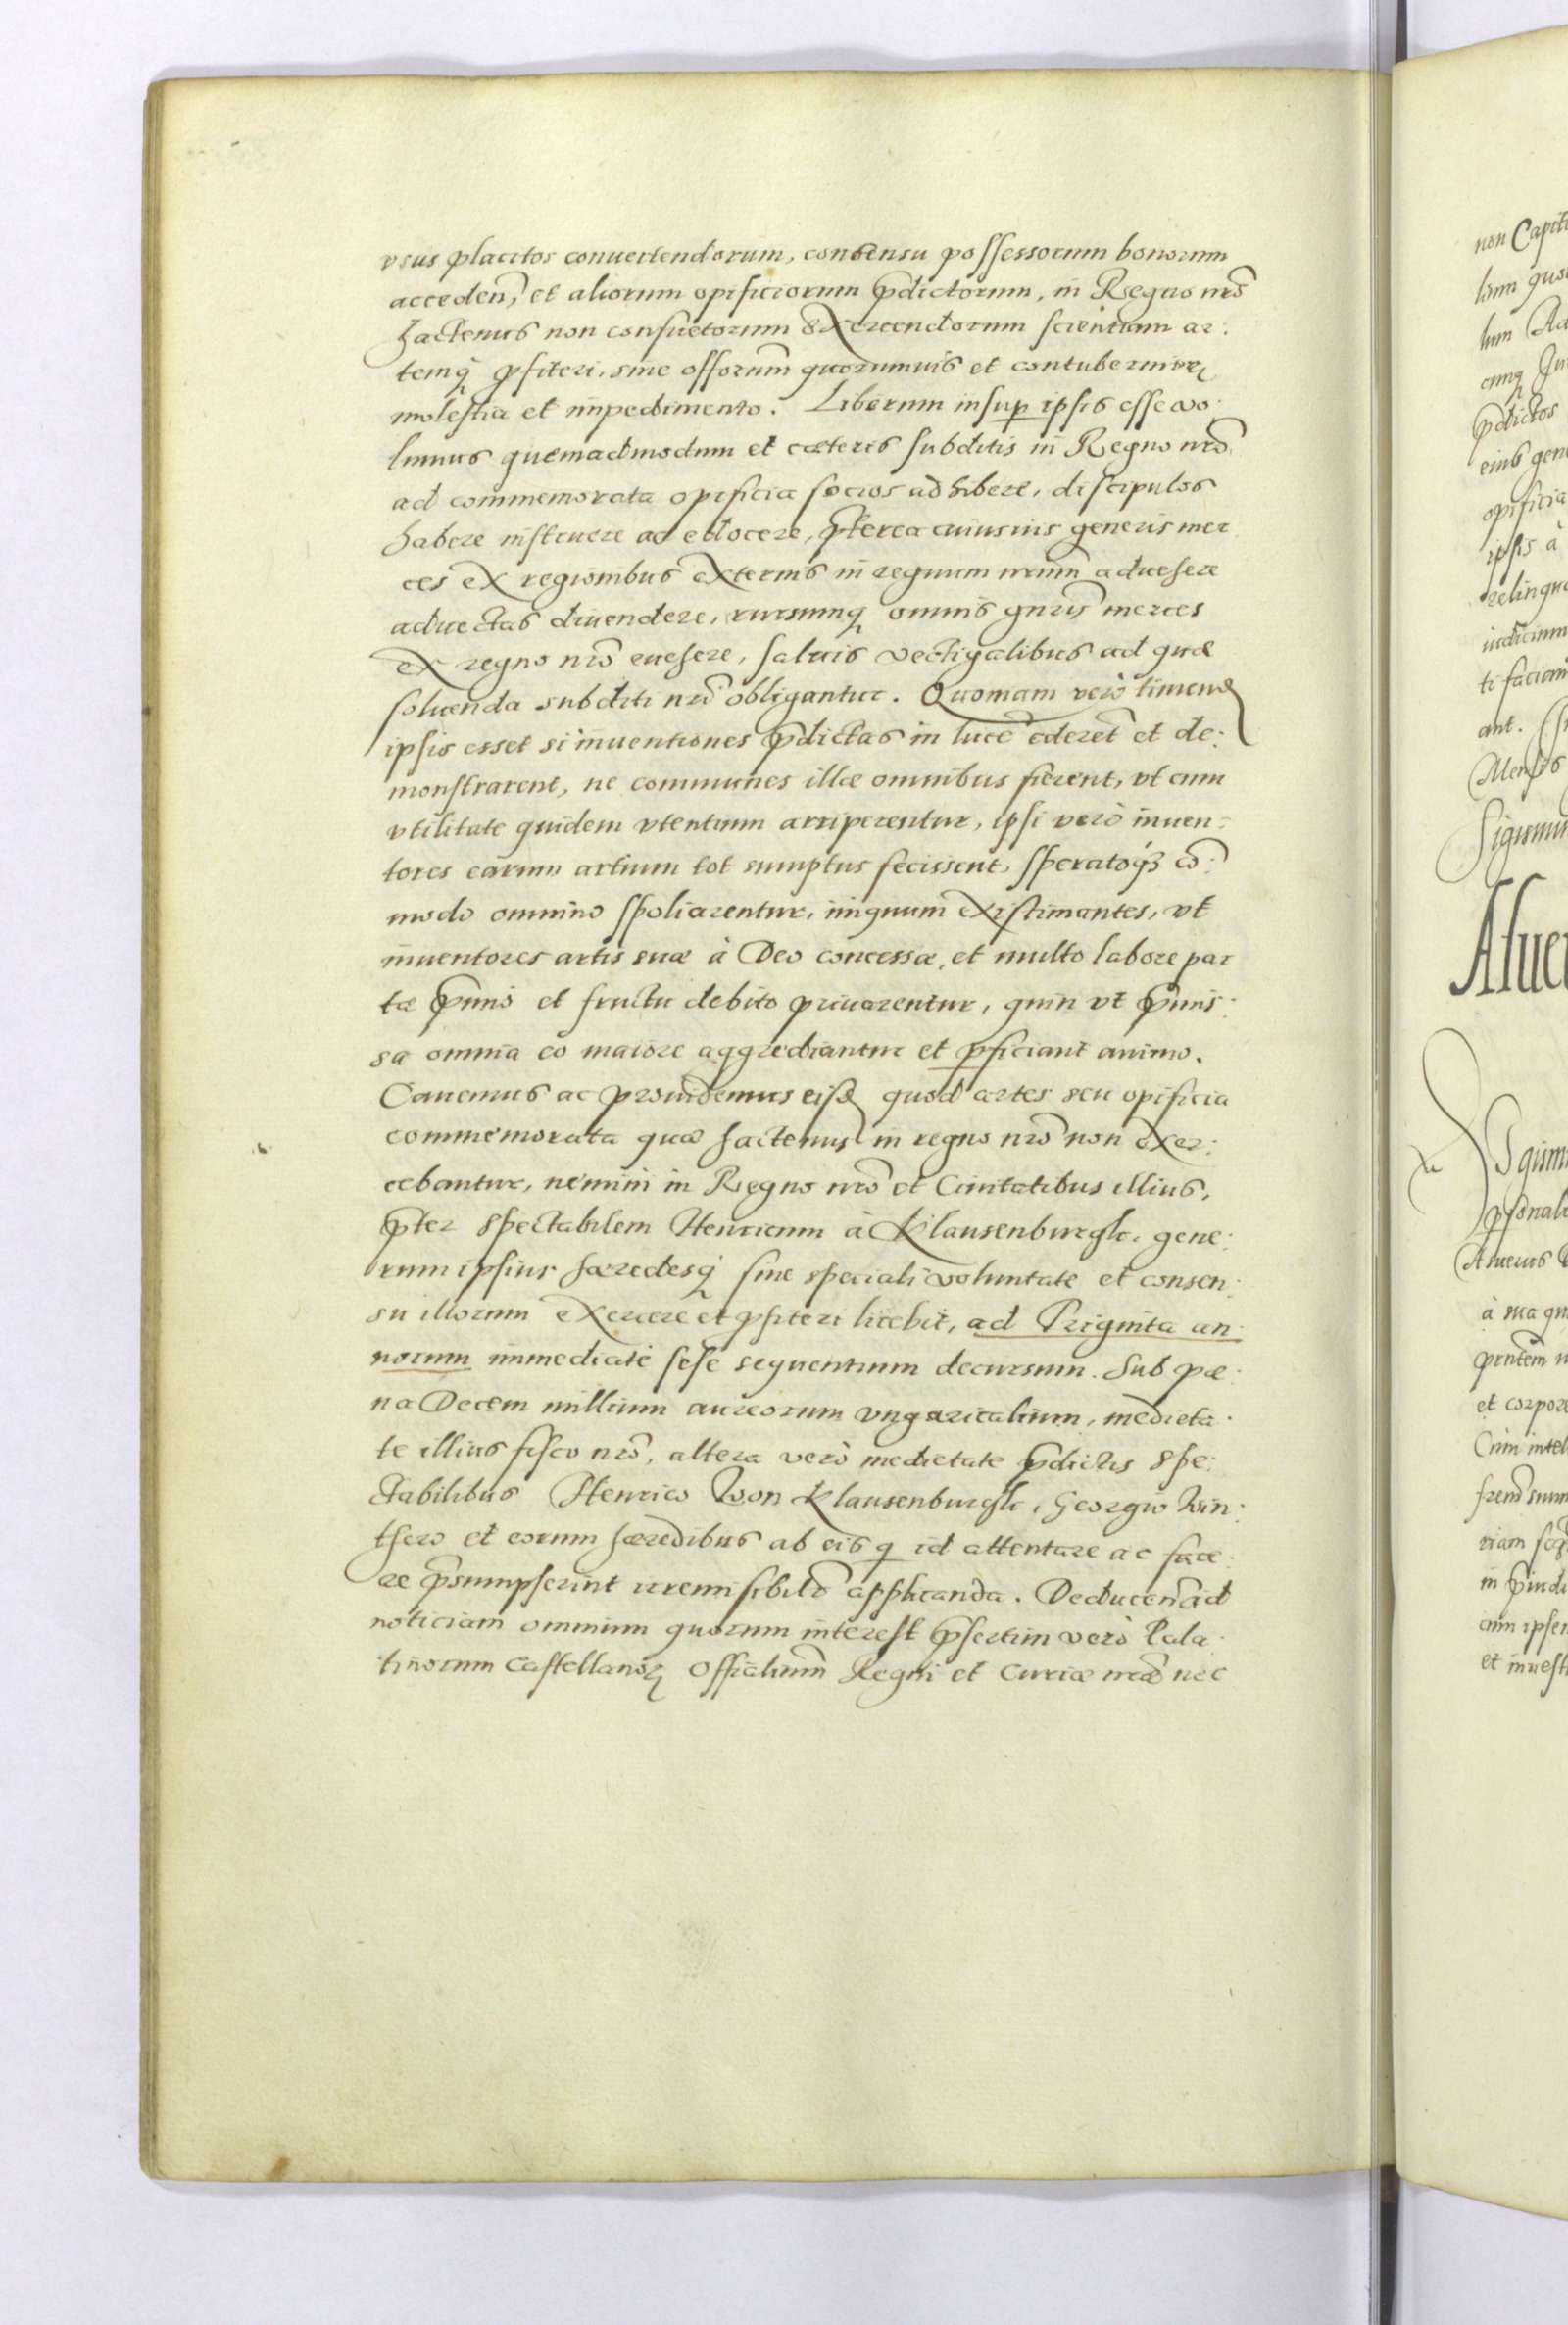 vsus placitos conuertendorum, consensu possessorum bonorum
acceden̄, et aliorum opificiorum p̄dictorum, in Regno nr̄o
hactenus non consuetorum Exercendorum scientiam ar:
temq́ ꝓfiteri, sine offorum̄ quorumuis et contubernioꝝ
molestia et impedimento. Liberum insuꝑ ipsis esse vo:
lumus quemadmodum et cæteris subditis in Regno nr̄o
ad commemorata opificia socios adhibere, discipulos
habere instruere ac edocere, p̄terea cuiusuis generis mer
ces ex regionibus externis in regnum nrum̄ aduehere
aduectas diuendere, rursumq́ omnis gnris̄ merces
ex regno nr̄o euehere, saluis vectigalibus ad quæ
soluenda subditi nr̄i obligantur. Quoniam verò timend̄
ipsis esset si inuentiones p̄dictas in lucē ederēt et de:
monstrarent, ne communes illæ omnibus fierent, vt cum
vtilitate quidem vtentium arriperentur, ipsi verò inuen:
tores earum artium tot sumptus fecissent, speratoq́ȝ cō:
modo omnino spoliarentur, iniquum existimantes, vt
inuentores artis suæ à Deo concessæ, et multo labore par
tæ p̄mio et fructu debito priuarentur, quin vt p̄mis:
sa omnia eo maiore aggrediantur et ꝑficiant animo.
Cauemus ac prouidemus eisd̄ quod artes seu opificia
commemorata quæ hactenus in regno nr̄o non exer:
cebantur, nemini in Regno nr̄o et Ciuitatibus illius,
p̄ter Spectabilem Henricum à Klausenburgk. gene:
rum ipsius hæredesq́ sine speciali voluntate et consen:
su illorum exercere et ꝓfiteri licebit, ad Triginta an:
norum immediatè sese sequentium decursum. Sub pæ:
na Decem millium aureorum vngaricalium, medieta:
te illius fisco nr̄o, altera verò medietate p̄dictis Spe:
ctabilibus Henrico Von Klausenburgk, Georgio Win:
thero et eorum hæredibus ab eis q̄ id attentare ac face:
re p̄sumpserint irremisibilr̄ applicanda. Deducen̄ ad
noticiam omnium quorum interest p̄sertim verò Pala:
tinorum Castellanoꝝ Officialium̄ Regni et Curiæ nr̄æ nec